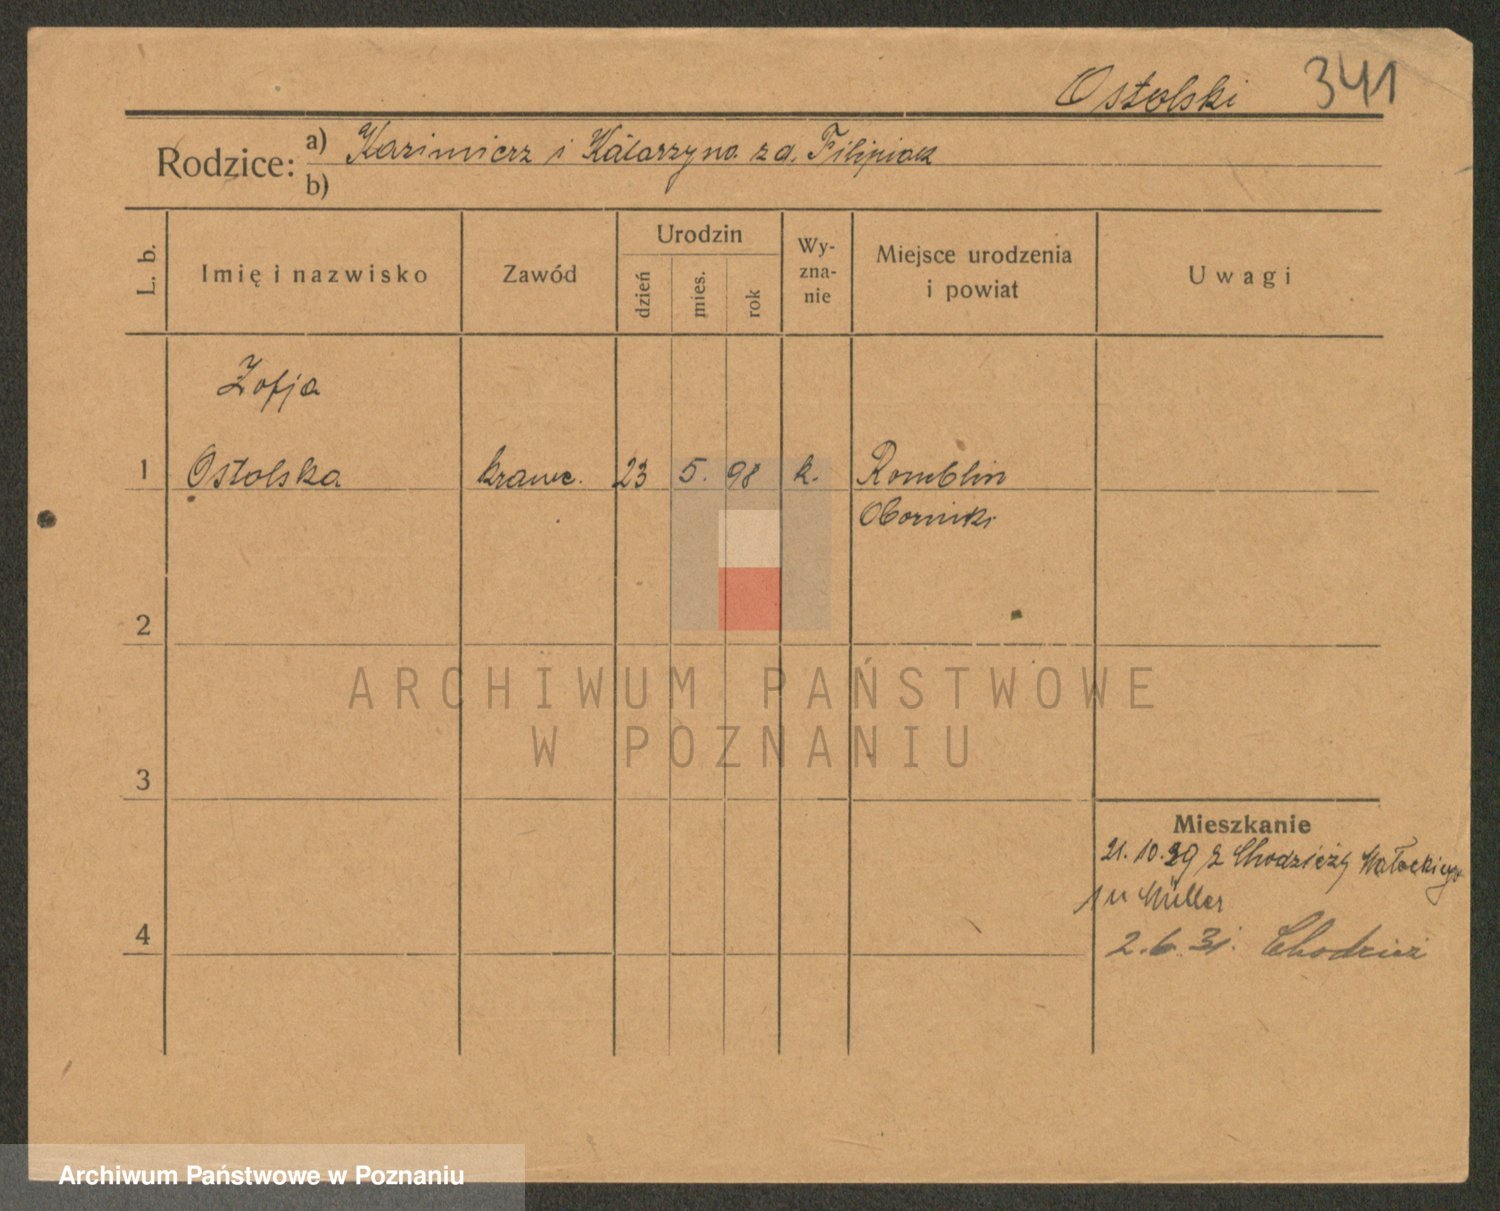 Ostolski 341
Rodzice: a) Kazimierz i Katarzyna zd. Filipiak
b)
L. b. Imię i nazwisko Zawód Urodzin dzień mies. rok Wy-zna-nie Miejsce urodzenia i powiat Uwagi
Zofja
1 Ostolska krawc. 23 5. 98 k. Romblin
Oborniki
2
ARCHIWUM PAŃSTWOWE
W POZNANIU
3
Mieszkanie
21.10.29 z Chodzieży
1 u Müller
4 2.6.31. Chodzież
Archiwum Państwowe w Poznaniu